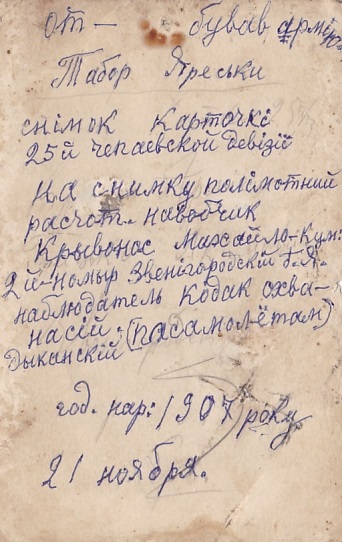 от — бував армію
Табор Яреськи
снімок Карточкі
25й чепаевской девізії
на снимку полімотний
расчот. наводчик
Крывонос Михайло-Кум:
2й-номыр Звенігородскій Б.Я.
наблюдатель Кодак охва-
насій.(пасамолётам)
Дыканскій
год. нар: 1907 року
21 ноября.